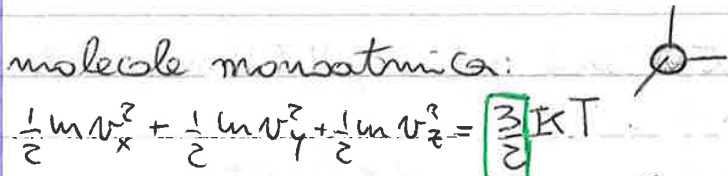 molecole monoatomica:
½ m v²ₓ + ½ m v²ᵧ + ½ m v²_z = 3/2 KT